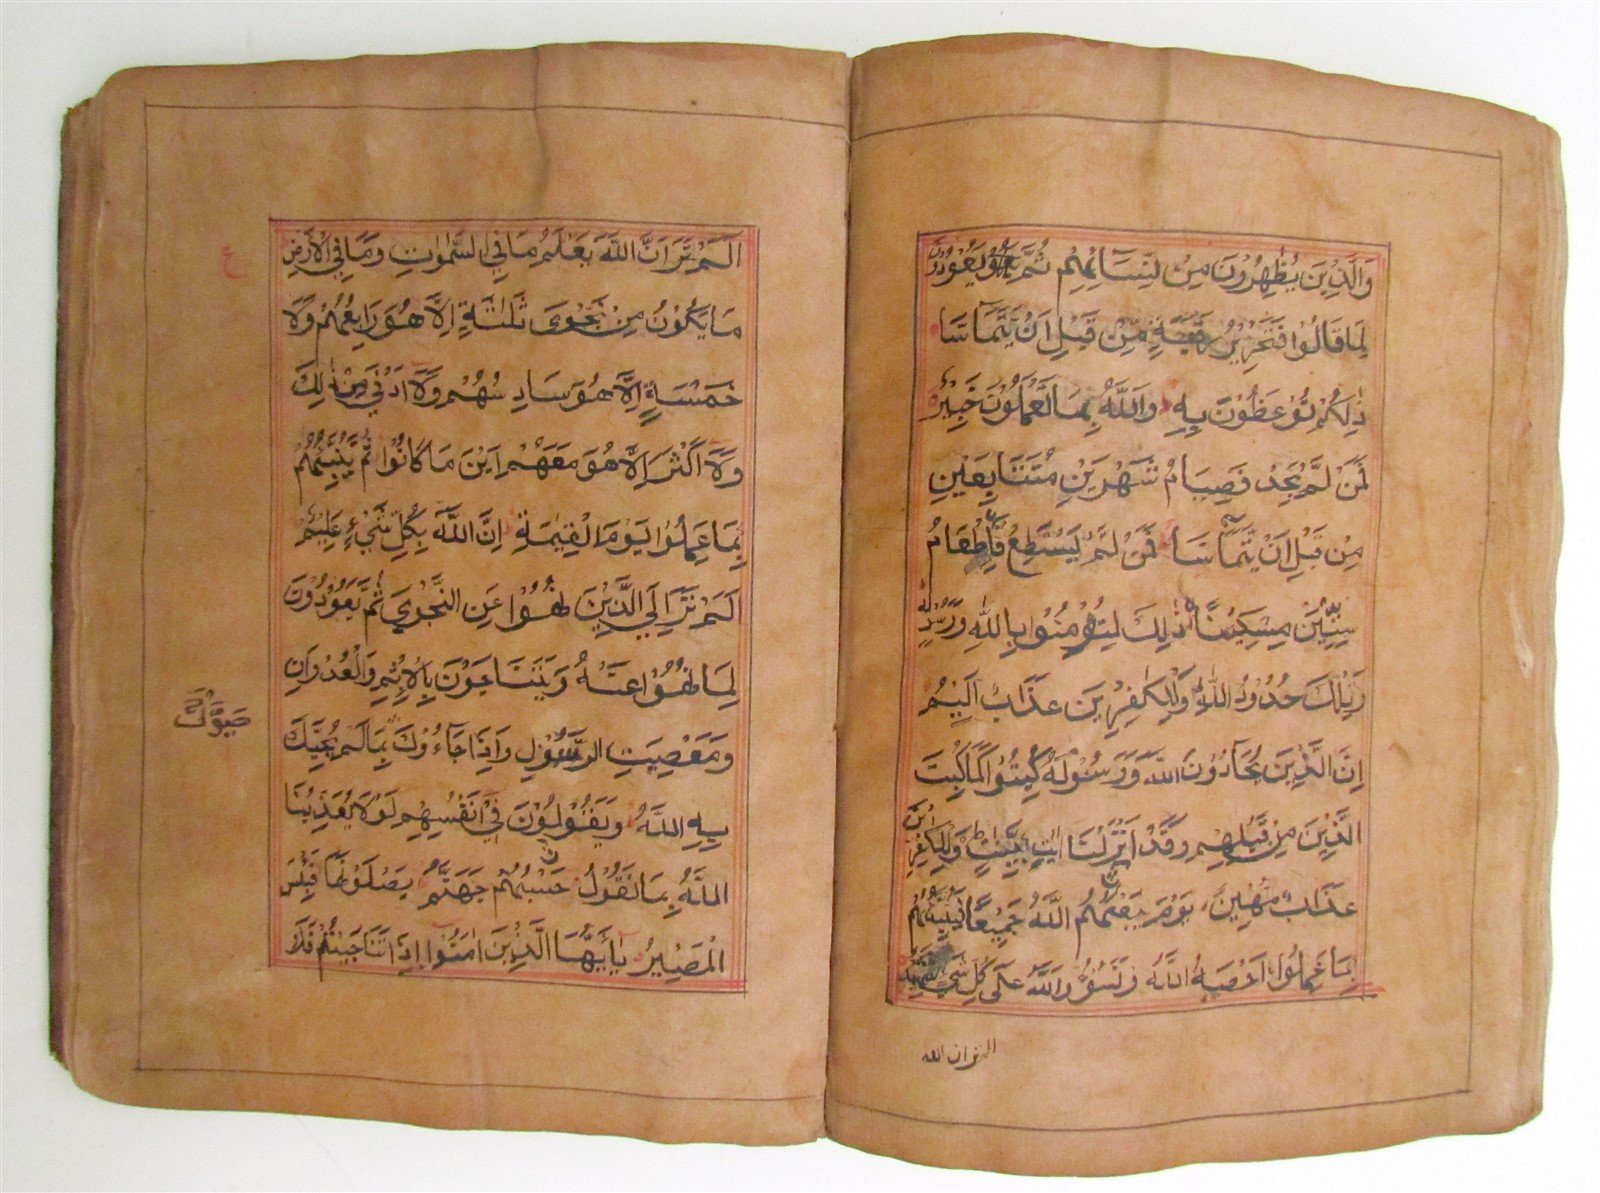 وَالَّذِيْنَ يُظٰهِرُوْنَ مِنْ نِّسَآئِهِمْ ثُمَّ يَعُوْدُوْنَ
لِمَا قَالُوْا فَتَحْرِيْرُ رَقَبَةٍ مِّنْ قَبْلِ اَنْ يَّتَمَآسَّا
ذٰلِكُمْ تُوْعَظُوْنَ بِهٖ وَاللّٰهُ بِمَا تَعْمَلُوْنَ خَبِيْرٌ
فَمَنْ لَّمْ يَجِدْ فَصِيَامُ شَهْرَيْنِ مُتَتَابِعَيْنِ
مِنْ قَبْلِ اَنْ يَّتَمَآسَّا فَمَنْ لَّمْ يَسْتَطِعْ فَاِطْعَامُ
سِتِّيْنَ مِسْكِيْنًا ذٰلِكَ لِتُؤْمِنُوْا بِاللّٰهِ وَرَسُوْلِهٖ
وَتِلْكَ حُدُوْدُ اللّٰهِ وَلِلْكٰفِرِيْنَ عَذَابٌ اَلِيْمٌ
اِنَّ الَّذِيْنَ يُحَآدُّوْنَ اللّٰهَ وَرَسُوْلَهٗ كُبِتُوْا كَمَا كُبِتَ
الَّذِيْنَ مِنْ قَبْلِهِمْ وَقَدْ اَنْزَلْنَا اٰيٰتٍ بَيِّنٰتٍ وَلِلْكٰفِرِيْنَ
عَذَابٌ مُّهِيْنٌ يَوْمَ يَبْعَثُهُمُ اللّٰهُ جَمِيْعًا فَيُنَبِّئُهُمْ
بِمَا عَمِلُوْا اَحْصٰهُ اللّٰهُ وَنَسُوْهُ وَاللّٰهُ عَلٰى كُلِّ شَيْءٍ شَهِيْدٌ
الم تر ان الله
اَلَمْ تَرَ اَنَّ اللّٰهَ يَعْلَمُ مَا فِي السَّمٰوٰتِ وَمَا فِي الْاَرْضِ
مَا يَكُوْنُ مِنْ نَّجْوٰى ثَلٰثَةٍ اِلَّا هُوَ رَابِعُهُمْ وَلَا
خَمْسَةٍ اِلَّا هُوَ سَادِسُهُمْ وَلَا اَدْنٰى مِنْ ذٰلِكَ
وَلَا اَكْثَرَ اِلَّا هُوَ مَعَهُمْ اَيْنَ مَا كَانُوْا ثُمَّ يُنَبِّئُهُمْ
بِمَا عَمِلُوْا يَوْمَ الْقِيٰمَةِ اِنَّ اللّٰهَ بِكُلِّ شَيْءٍ عَلِيْمٌ
اَلَمْ تَرَ اِلَى الَّذِيْنَ نُهُوْا عَنِ النَّجْوٰى ثُمَّ يَعُوْدُوْنَ
لِمَا نُهُوْا عَنْهُ وَيَتَنَاجَوْنَ بِالْاِثْمِ وَالْعُدْوَانِ
وَمَعْصِيَتِ الرَّسُوْلِ وَاِذَا جَآءُوْكَ بِمَا لَمْ يُحَيِّكَ
حَيَّوْكَ
بِهِ اللّٰهُ وَيَقُوْلُوْنَ فِيْ اَنْفُسِهِمْ لَوْلَا يُعَذِّبُنَا
اللّٰهُ بِمَا نَقُوْلُ حَسْبُهُمْ جَهَنَّمُ يَصْلَوْنَهَا فَبِئْسَ
الْمَصِيْرُ يٰاَيُّهَا الَّذِيْنَ اٰمَنُوْا اِذَا تَنَاجَيْتُمْ فَلَا
ع